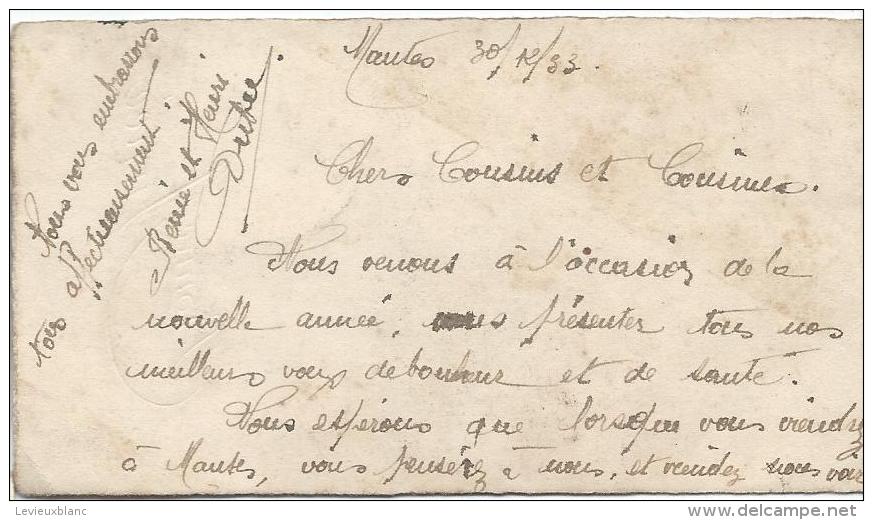 Mantes 30/12/33.
Chers Cousins et Cousines.
Nous venons à l'occasion de la
nouvelle année, vous présenter tous nos
meilleurs voeux de bonheur et de santé.
Nous espérons que lorsque vous viendrez
à Mantes, vous penserez à nous, et viendez nous voir
Nous vous embrassons
tous affectueusement.
Renée et Henri
Levieuxblanc
delcampe.net